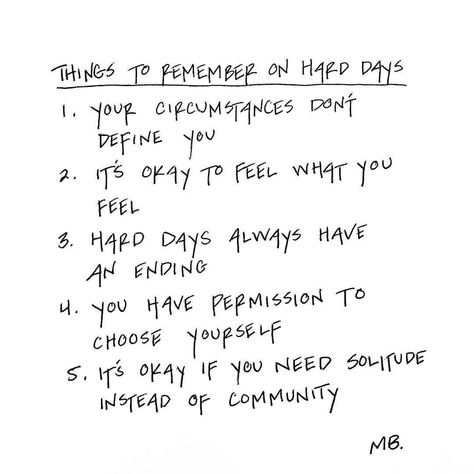 THINGS TO REMEMBER ON HARD DAYS
1. YOUR CIRCUMSTANCES DON'T
DEFINE YOU
2. IT'S OKAY TO FEEL WHAT YOU
FEEL
3. HARD DAYS ALWAYS HAVE
AN ENDING
4. YOU HAVE PERMISSION TO
CHOOSE YOURSELF
5. IT'S OKAY IF YOU NEED SOLITUDE
INSTEAD OF COMMUNITY
MB.